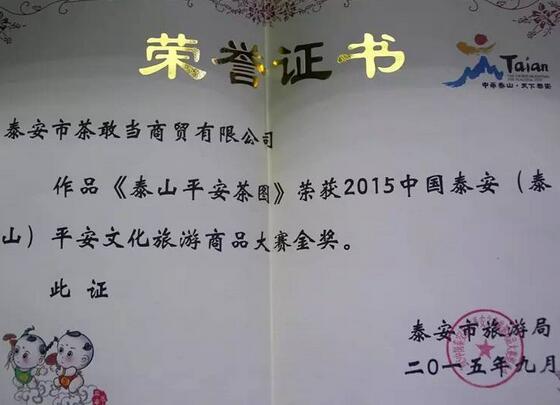 荣誉证书
Taian
中华泰山·天下泰安
泰安市茶敢当商贸有限公司
作品《泰山平安茶图》荣获2015中国泰安（泰
山）平安文化旅游商品大赛金奖。
此 证
泰安市旅游局
二〇一五年九月